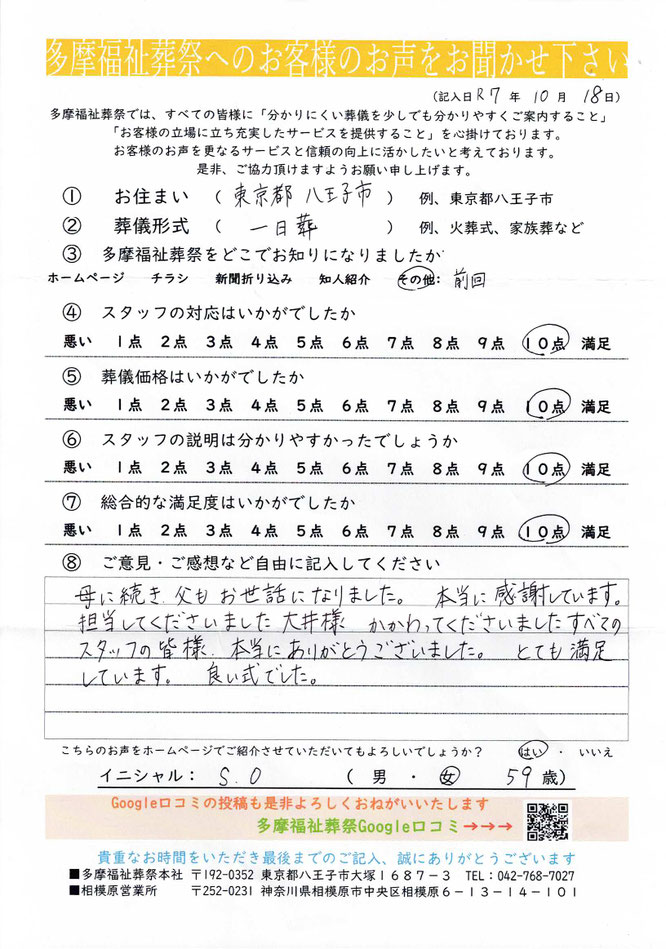 多摩福祉葬祭へのお客様のお声をお聞かせ下さい
（記入日R7年10月18日）
多摩福祉葬祭では、すべての皆様に「分かりにくい葬儀を少しでも分かりやすくご案内すること」
「お客様の立場に立ち充実したサービスを提供すること」を心掛けております。
お客様のお声を更なるサービスと信頼の向上に活かしたいと考えております。
是非、ご協力頂けますようお願い申し上げます。
① お住まい （東京都 八王子市） 例、東京都八王子市
② 葬儀形式 （一日葬） 例、火葬式、家族葬など
③ 多摩福祉葬祭をどこでお知りになりましたか
ホームページ チラシ 新聞折り込み 知人紹介 その他：前回
④ スタッフの対応はいかがでしたか
悪い 1点 2点 3点 4点 5点 6点 7点 8点 9点 10点 満足
⑤ 葬儀価格はいかがでしたか
悪い 1点 2点 3点 4点 5点 6点 7点 8点 9点 10点 満足
⑥ スタッフの説明は分かりやすかったでしょうか
悪い 1点 2点 3点 4点 5点 6点 7点 8点 9点 10点 満足
⑦ 総合的な満足度はいかがでしたか
悪い 1点 2点 3点 4点 5点 6点 7点 8点 9点 10点 満足
⑧ ご意見・ご感想など自由に記入してください
母に続き、父もお世話になりました。 本当に感謝しています。
担当してくださいました大井様 かかわってくださいましたすべての
スタッフの皆様、本当にありがとうございました。 とても満足
しています。 良い式でした。
こちらのお声をホームページでご紹介させていただいてもよろしいでしょうか？ はい ・ いいえ
イニシャル： S.O （ 男 ・ 女 59歳）
Google口コミの投稿も是非よろしくおねがいいたします
多摩福祉葬祭Google口コミ→→→
貴重なお時間をいただき最後までのご記入、誠にありがとうございます
■多摩福祉葬祭本社 〒192-0352 東京都八王子市大塚1687-3 TEL：042-768-7027
■相模原営業所 〒252-0231 神奈川県相模原市中央区相模原6-13-14-101